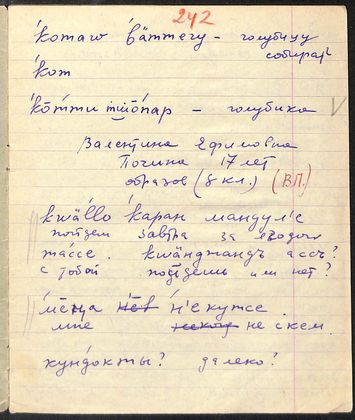 242
ко̄таw вӓттегу – голубицу
собирать
кот
кӧ̄тти тшо̄пар – голубика
Валентина Ефимовна
17 лет
образов (8 кл.) (В.П.)
кwӓllо каран мандул'е
пойдем завтра за ягодой
та̄ссе. кwӓнджандъ ассъ?
с тобой пойдёшь или нет?
ме̄ңа н'екутже.
мне не с кем.
кундокты? далеко?